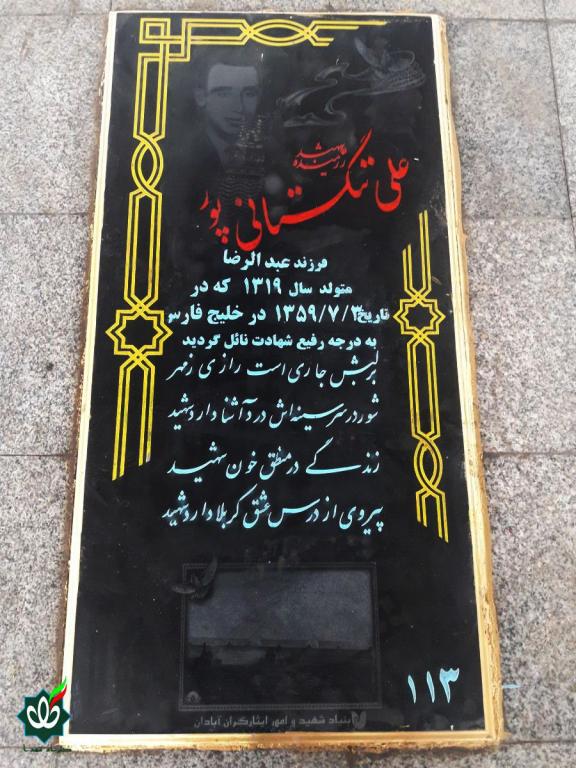 رزمنده شهید
علی تنگستانی پور
فرزند عبدالرضا
متولد سال ۱۳۱۹ که در
تاریخ ۱۳۵۹/۷/۳ در خلیج فارس
به درجه رفیع شهادت نائل گردید
بر لبش جاری است رازی ز مهر
شور در سر سینه‌اش درد آشنا دارد شهید
زندگی در منطق خون شهید
پیروی از درس عشق کربلا دارد شهید
۱۱۳
بنیاد شهید و امور ایثارگران آبادان